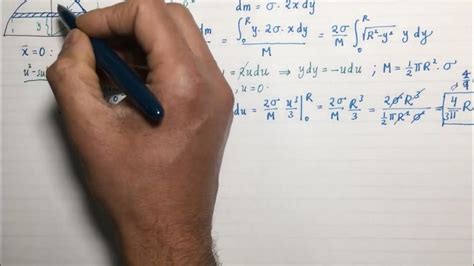 dm = σ · 2xdy
x̄ = 0 :
= ∫₀ᴿ y · σ · 2xdy / M = 2σ/M ∫₀ᴿ √(R²-y²) y dy
= 2udu ⇒ ydy = -udu ; M = ½πR² · σ
, u = 0 ·
du = 2σ/M u³/3 |₀ᴿ = 2σ/M R³/3 = 2σR³/3 / ½πR²σ = 4/3π R